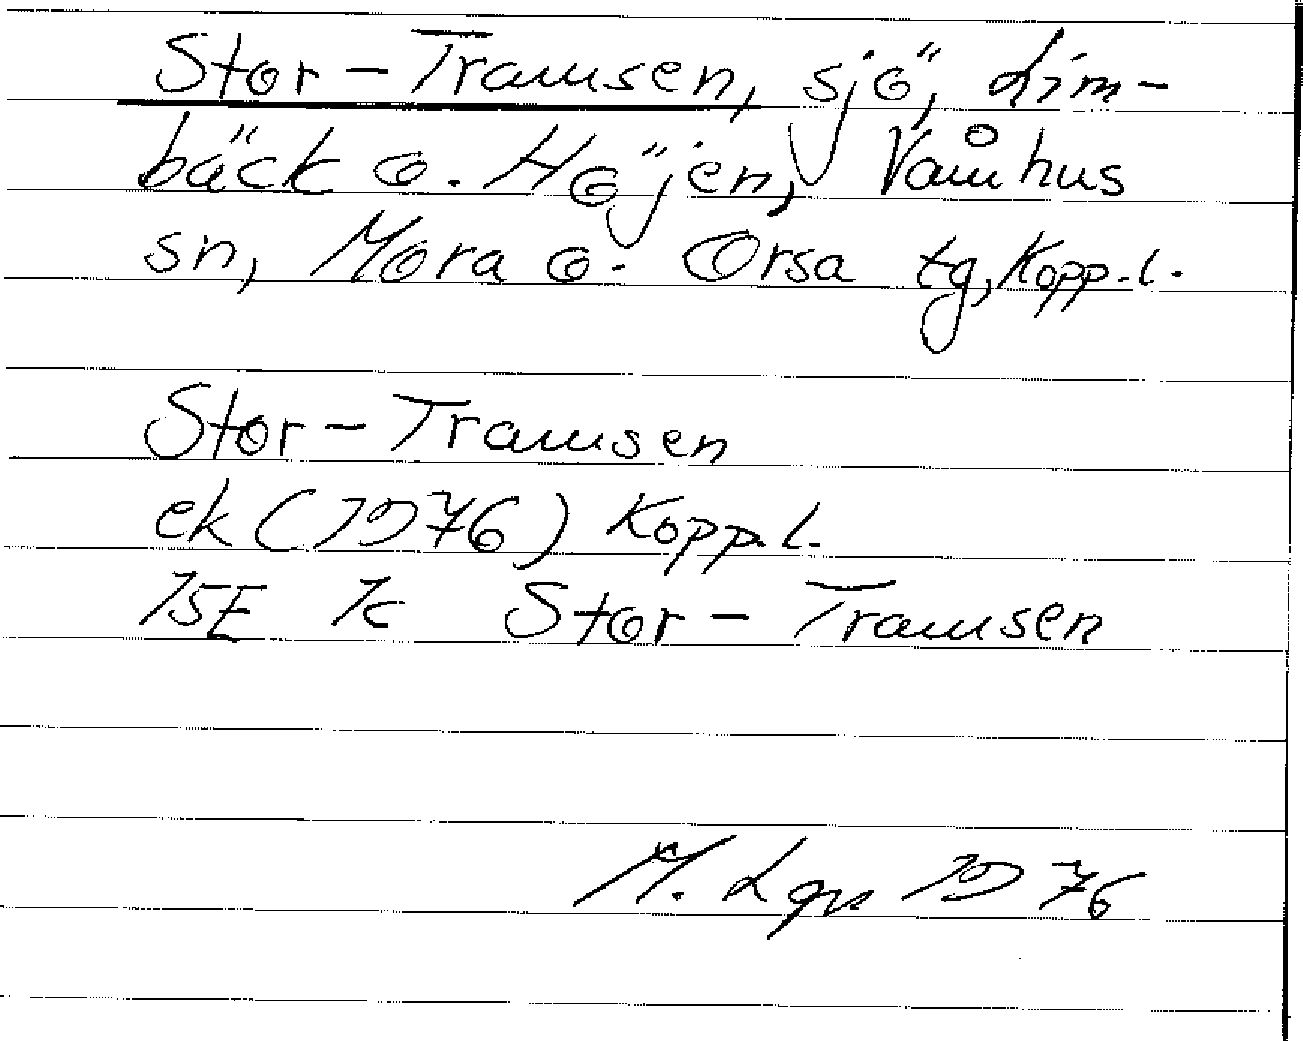 Stor-Tramsen, sjö, Lim-
bäck o. Höjen, Våmhus
sn, Mora o. Orsa tg, Kopp.l.
Stor-Tramsen
ek (1976) Kopp.l.
15E 1c Stor-Tramsen
M. Lgn 1976